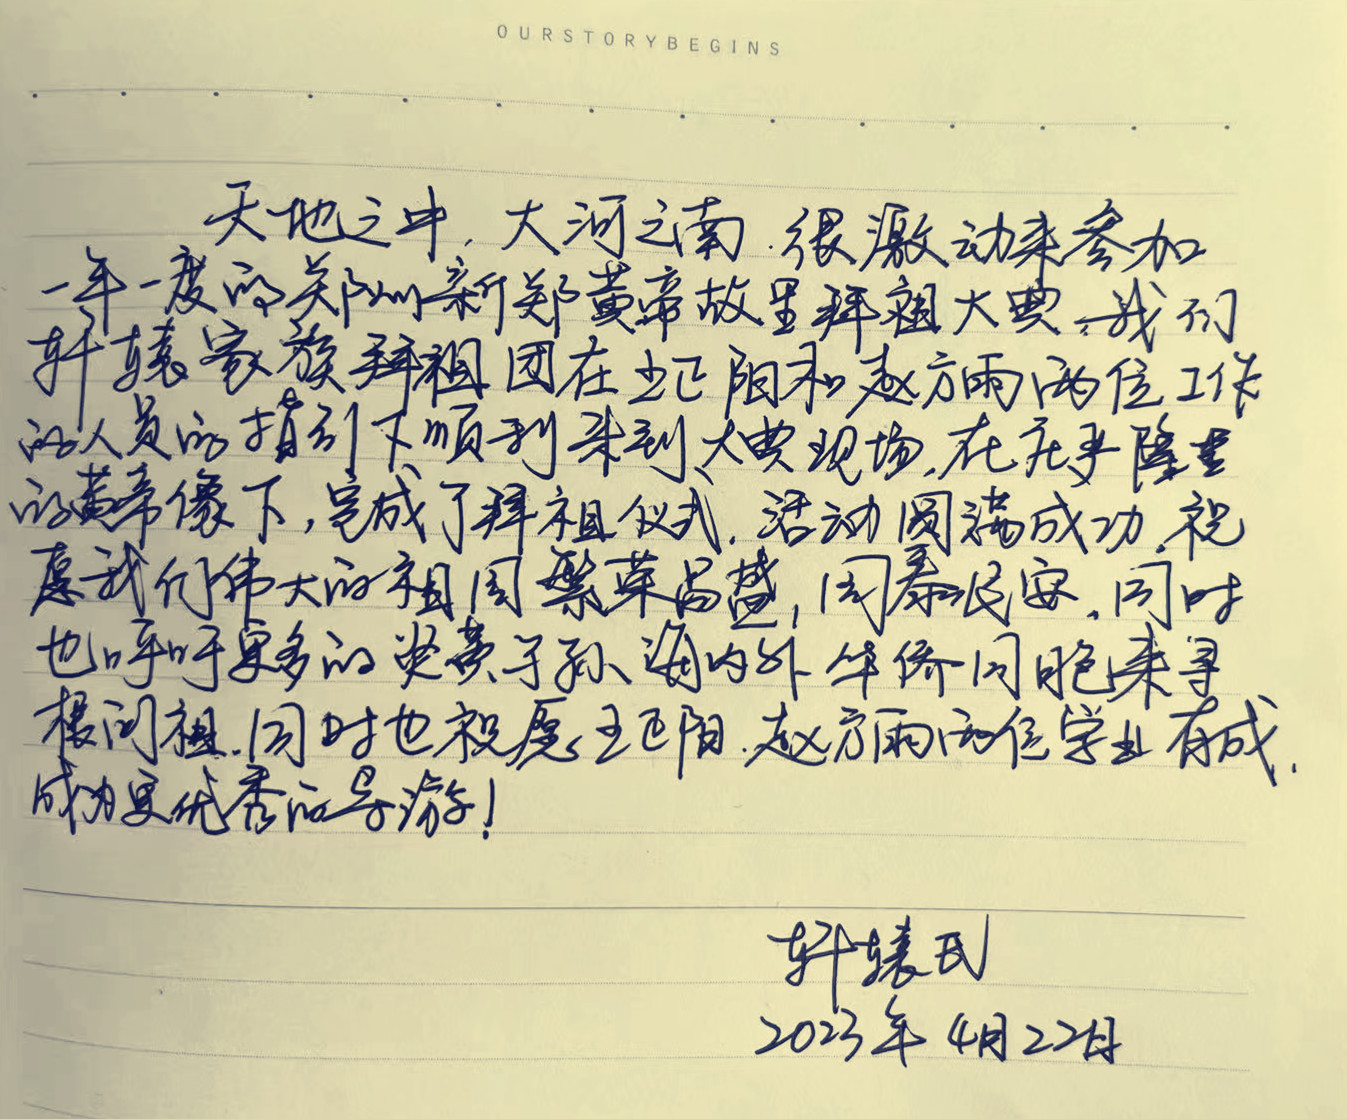 OURSTORYBEGINS
天地之中,大河之南.很激动来参加
一年一度的郑州新郑黄帝故里拜祖大典,我们
轩辕家族拜祖团在王正阳和赵方雨两位工作
的人员的指引下顺利来到大典现场,在庄严隆重
的黄帝像下,完成了拜祖仪式,活动圆满成功,祝
愿我们伟大的祖国繁荣昌盛,国泰民安,同时
也呼吁更多的炎黄子孙、海内外华侨同胞来寻
根问祖.同时也祝愿王正阳.赵方雨两位学业有成,
成为更优秀的导游!
轩辕氏
2023年4月22日